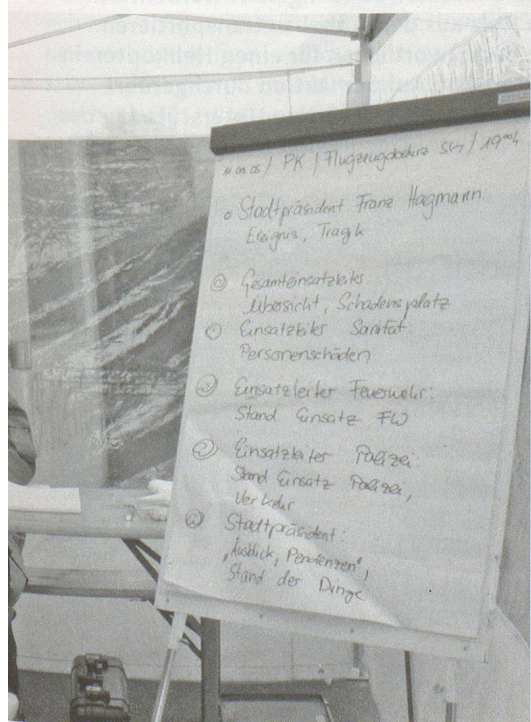 PK / Flugzeugabsturz SG / 19⁰⁰h
Stadtpräsident Franz Hagmann
Ereignis, Tragik
Gesamteinsatzleiter
Übersicht, Schadensplatz
Einsatzleiter Sanität:
Personenschäden
Einsatzleiter Feuerwehr:
Stand Einsatz FW
Einsatzleiter Polizei:
Stand Einsatz Polizei,
Verkehr
Stadtpräsident:
"Ausblick, Pendenzen",
Stand der Dinge